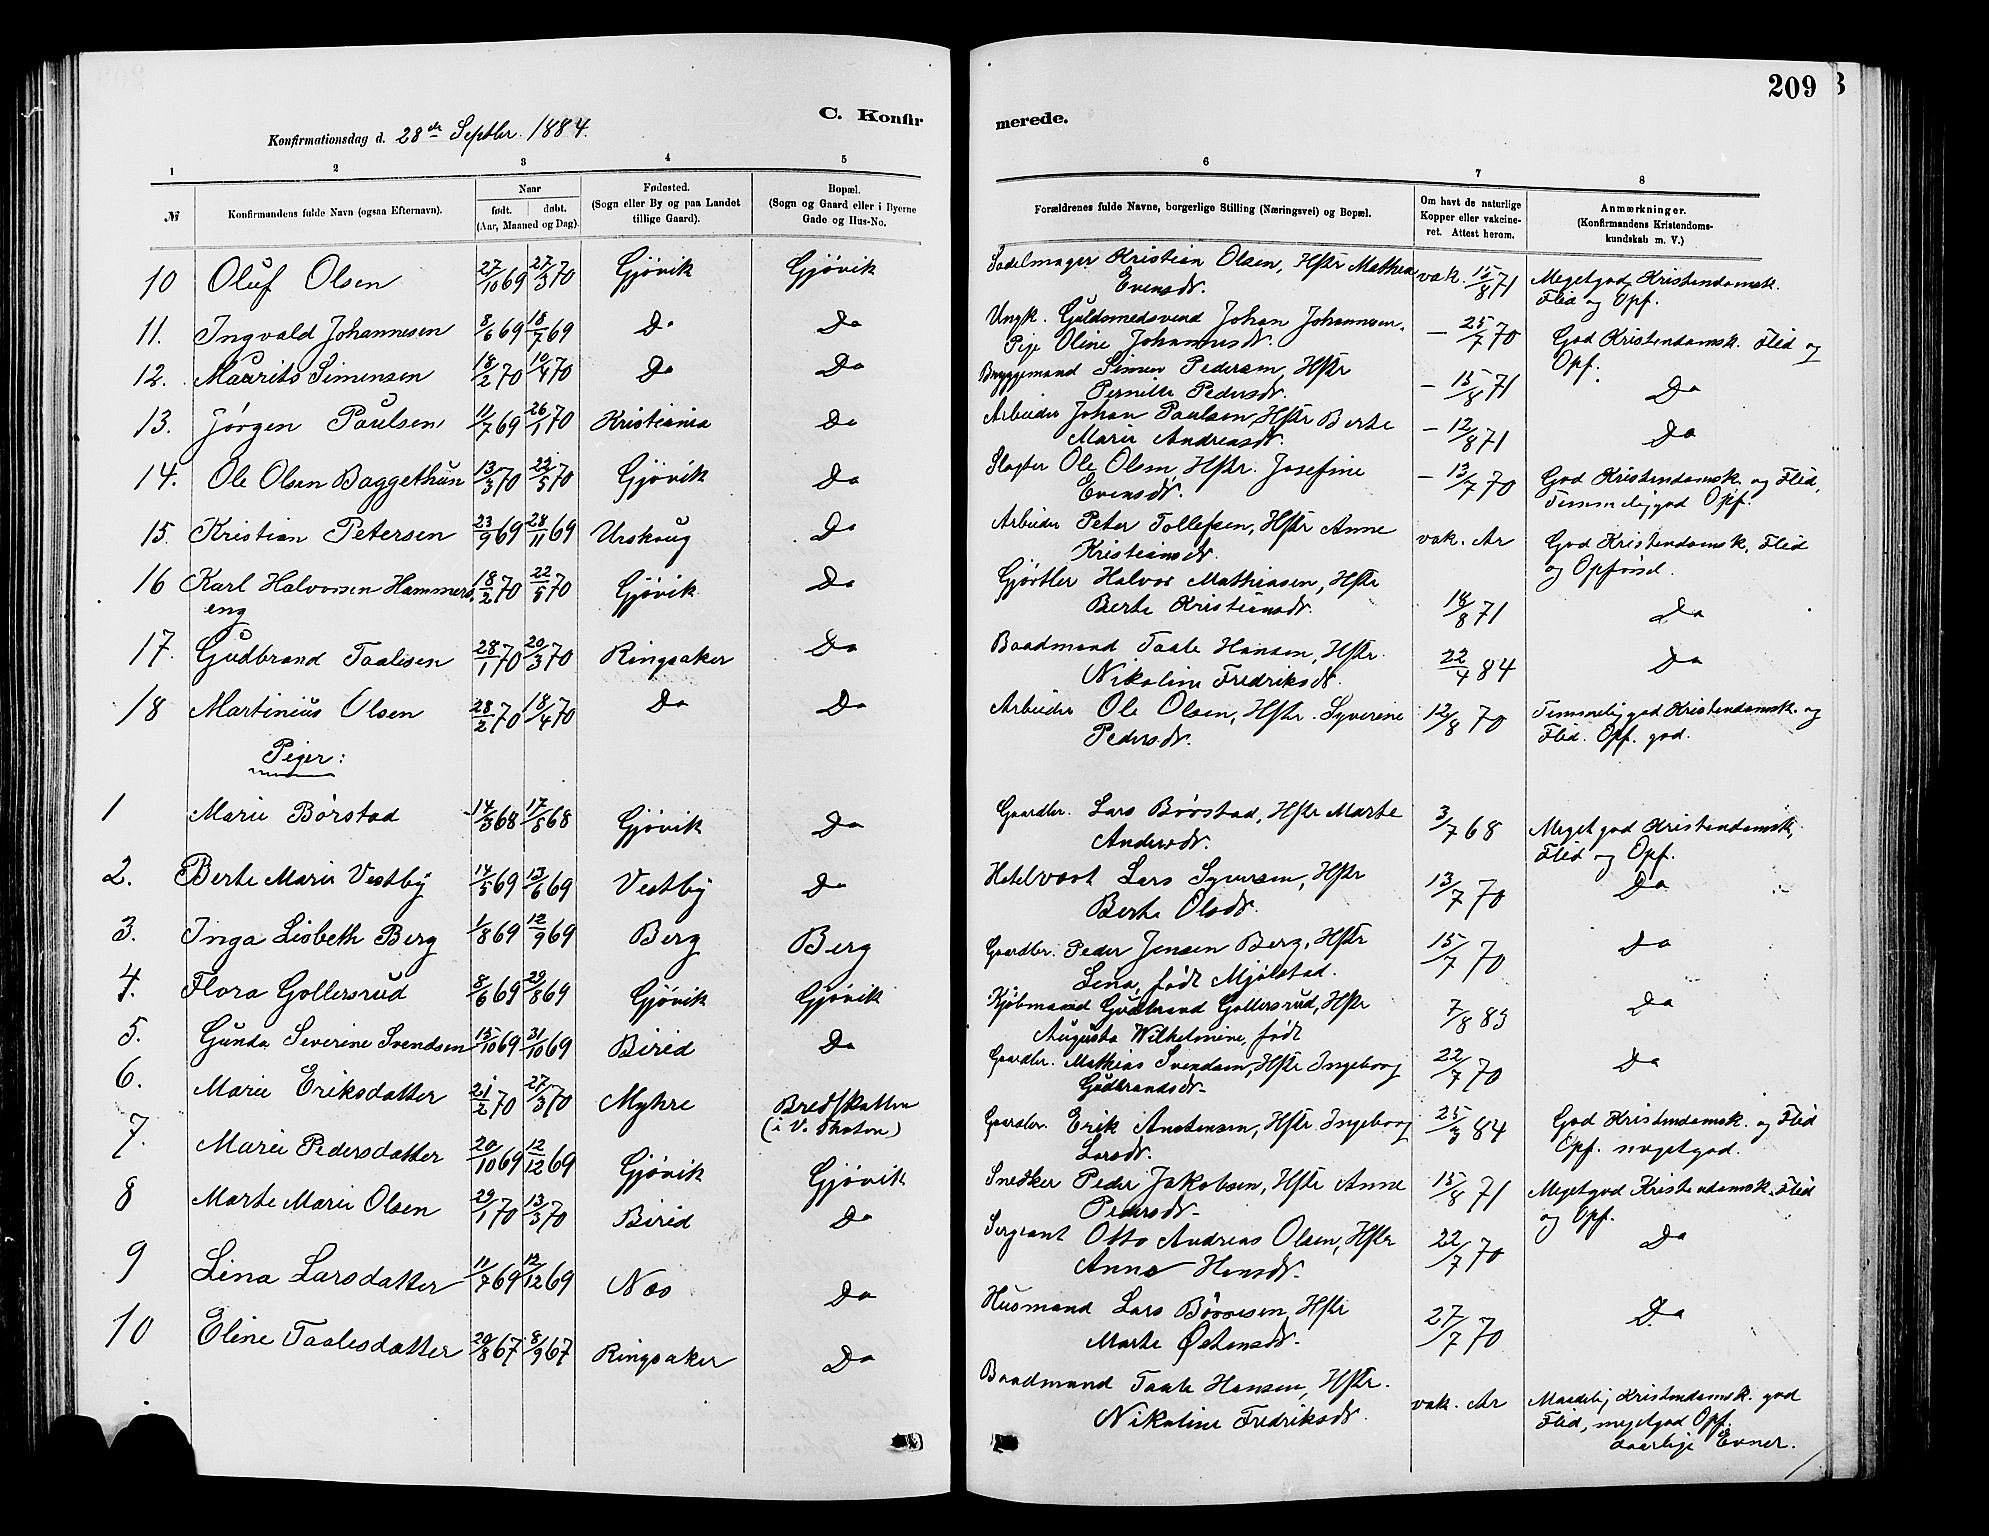 209
C. Konfir
merede.
Konfirmationsdag d. 28de Septbr. 1884.
1 2 3 4 5
6 7 8
№
Konfirmandens fulde Navn (ogsaa Efternavn).
Naar
født. døbt.
(Aar, Maaned og Dag).
Fødested.
(Sogn eller By og paa Landet
tillige Gaard).
Bopæl.
(Sogn og Gaard eller i Byerne
Gade og Hus-No.
Forældrenes fulde Navne, borgerlige Stilling (Næringsvei) og Bopæl.
Om havt de naturlige
Kopper eller vakcine-
ret. Attest herom.
Anmærkninger.
(Konfirmandens Kristendoms-
kundskab m. V.)
10 Oluf Olsen 27/10 69 27/3 70 Gjøvik Gjøvik Sadelmager Kristian Olsen, Hstr Mathea vak. 15/8 71 Megetgod Kristendomsk.
Evensdr. Flid og Opf.
11. Ingvald Johannesen 8/6 69 18/7 69 Do Do Ungk. Guldsmedsvend Johan Johannesen, — 25/7 70 God Kristendomsk. Flid og
Pige Oline Johannesdr. Opf.
12. Maurits Simensen 18/2 70 10/4 70 Do Do Bryggemand Simen Pedersen, Hstr — 15/8 71 Do
Pernille Pedersdr.
13. Jørgen Paulsen 11/7 69 26/1 70 Kristiania Do Arbeider Johan Paulsen, Hstr Berte — 12/8 71 Do
Marie Andreasdr.
14. Ole Olsen Baggethun 13/3 70 22/5 70 Gjøvik Do Slagter Ole Olsen Hstr. Josefine — 13/7 70 God Kristendomsk. og Flid,
Evensdr. Temmeliggod Opf.
15. Kristian Petersen 23/9 69 28/11 69 Urskoug Do Arbeider Peter Tollefsen, Hstr Anne vak. Ar God Kristendomsk, Flid
Kristiansdr. og Opførsel.
16 Karl Halvorsen Hammers- 18/2 70 22/5 70 Gjøvik Do Gjørtler Halvor Mathiasen, Hstr 18/8 71 Do
eng Berte Kristiansdr.
17. Gudbrand Taalesen 28/1 70 20/3 70 Ringsaker Do Baadmand Taale Hansen, Hstr. 22/4 84 Do
Nikoline Fredriksdr.
18 Martinius Olsen 28/2 70 18/4 70 Do Do Arbeider Ole Olsen, Hstr. Syverine 12/8 70 Temmeliggod Kristendomsk. og
Pedersdr. Flid. Opf. god.
Piger:
1 Marie Børstad 14/3 68 17/5 68 Gjøvik Do Gaardbr. Lars Børstad, Hstr Marte 3/7 68 Megetgod Kristendomsk,
Andersdr. Flid og Opf.
2. Berte Marie Vestby 14/5 69 13/6 69 Vestby Do Hotelvært Lars Syversen, Hstr 13/7 70 Do
Berte Olsdr.
3. Inga Lisbeth Berg 1/8 69 12/9 69 Berg Berg Gaardbr. Peder Jensen Berg, Hstr 15/7 70 Do
Lena, født Mjølstad.
4. Flora Gollersrud 8/6 69 29/8 69 Gjøvik Gjøvik Kjøbmand Gudbrand Gollersrud, Hstr 7/8 83 Do
Augusta Wilhelmine, født
5. Gunda Severine Svendsen 15/10 69 31/10 69 Birid Do Gaardbr. Mathias Svendsen, Hstr Ingeborg 22/7 70 Do
Gudbrandsdr.
6. Marie Eriksdatter 21/2 70 27/3 70 Myhre Bredskallen Gaardbr. Erik Anstensen, Hstr Ingeborg 25/3 84 God Kristendomsk. og Flid
(i V. Thoten) Larsdr. Opf. megetgod.
7. Marie Pedersdatter 20/10 69 12/12 69 Gjøvik Gjøvik Snedker Peder Jakobsen, Hstr Anne 15/8 71 Megetgod Kristendomsk. Flid
Pedersdr. og Opf.
8 Marte Marie Olsen 29/1 70 13/3 70 Birid Do Sergeant Otto Andreas Olsen, Hstr 22/7 70 Do
Anne Hansdr.
9 Lina Larsdatter 11/7 69 12/12 69 Næs Do Husmand Lars Børresen, Hstr 27/7 70 Do
Marte Østensdr.
10 Eline Taalesdatter 20/8 67 8/9 67 Ringsaker Do Baadmand Taale Hansen, Hstr. vak. Ar Maadelig Kristendomsk. god
Nikoline Fredriksdr. Flid, megetgod Opf.
daarlige Evner.